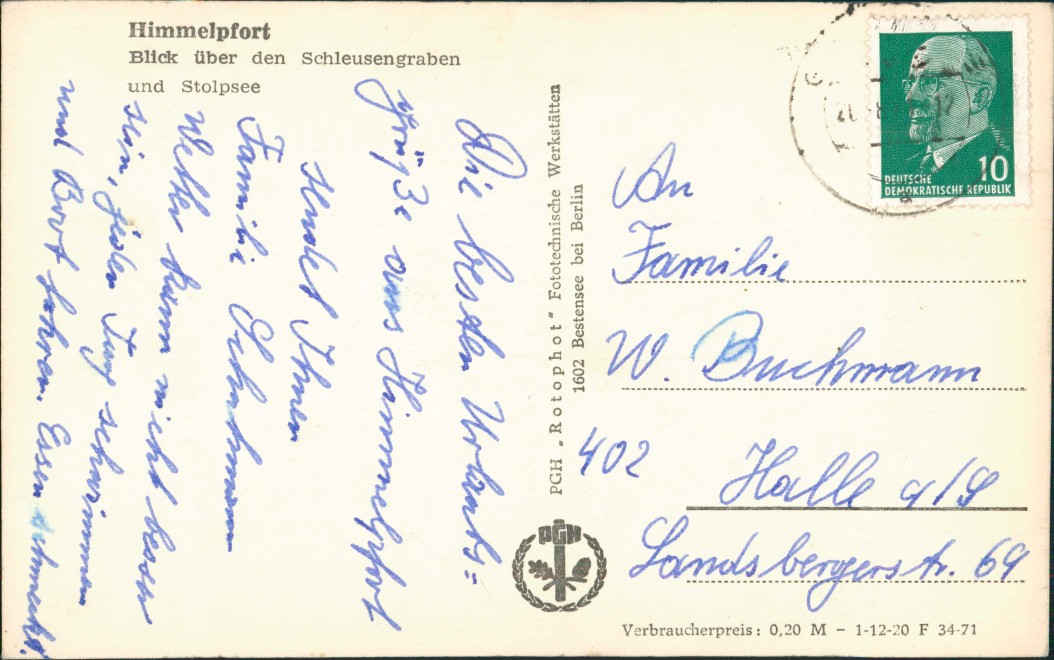 Himmelpfort
Blick über den Schleusengraben
und Stolpsee
Die besten Urlaubs=
grüße aus Himmelpfort
sendet Ihnen
Familie
Wetter kann nicht besser
sein, jeden Tag schwimmen
und Boot fahren. Essen schmeckt.
PGH „Rotophot" Fototechnische Werkstätten
1602 Bestensee bei Berlin
PGH
DEUTSCHE
DEMOKRATISCHE REPUBLIK
10
An
Familie
W. Buchmann
402
Halle a/S
Landsbergerstr. 69
Verbraucherpreis: 0,20 M – 1-12-20 F 34-71